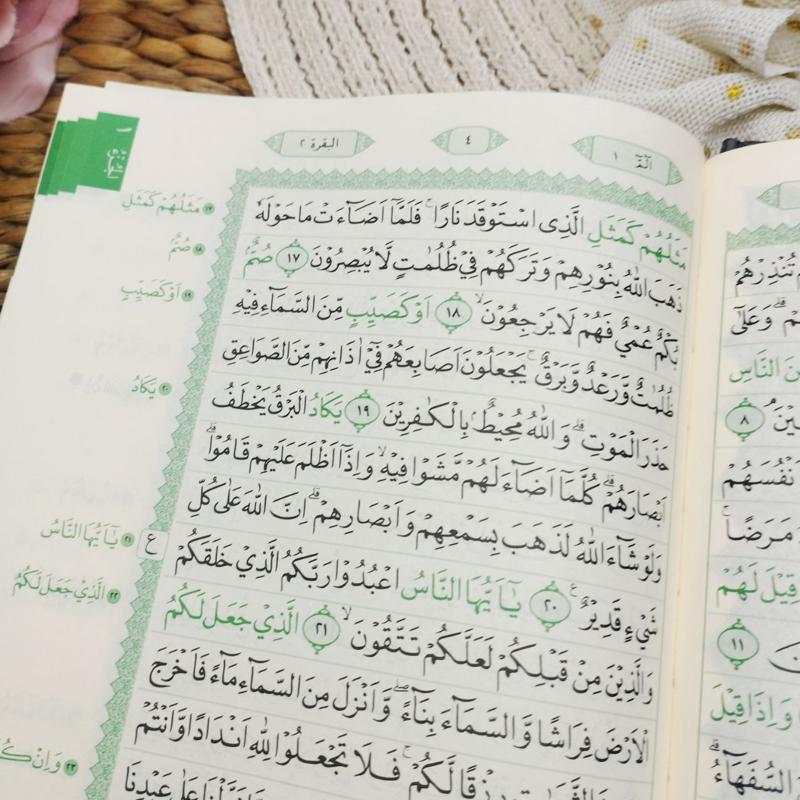 الٓمٓ ١
٤
البقرة ٢
الجزء ١
مَثَلُهُمْ كَمَثَلِ الَّذِى اسْتَوْقَدَ نَارًا ۚ فَلَمَّآ اَضَآءَتْ مَا حَوْلَهٗ
ذَهَبَ اللّٰهُ بِنُوْرِهِمْ وَتَرَكَهُمْ فِيْ ظُلُمٰتٍ لَّا يُبْصِرُوْنَ ١٧ صُمٌّۢ
بُكْمٌ عُمْيٌ فَهُمْ لَا يَرْجِعُوْنَ ۙ ١٨ اَوْ كَصَيِّبٍ مِّنَ السَّمَآءِ فِيْهِ
ظُلُمٰتٌ وَّرَعْدٌ وَّبَرْقٌ ۚ يَجْعَلُوْنَ اَصَابِعَهُمْ فِيْٓ اٰذَانِهِمْ مِّنَ الصَّوَاعِقِ
حَذَرَ الْمَوْتِ ۗ وَاللّٰهُ مُحِيْطٌۢ بِالْكٰفِرِيْنَ ١٩ يَكَادُ الْبَرْقُ يَخْطَفُ
اَبْصَارَهُمْ ۗ كُلَّمَآ اَضَآءَ لَهُمْ مَّشَوْا فِيْهِ ۙ وَاِذَآ اَظْلَمَ عَلَيْهِمْ قَامُوْا ۗ
وَلَوْ شَآءَ اللّٰهُ لَذَهَبَ بِسَمْعِهِمْ وَاَبْصَارِهِمْ ۗ اِنَّ اللّٰهَ عَلٰى كُلِّ
شَيْءٍ قَدِيْرٌ ࣖ ٢٠ يٰٓاَيُّهَا النَّاسُ اعْبُدُوْا رَبَّكُمُ الَّذِيْ خَلَقَكُمْ
وَالَّذِيْنَ مِنْ قَبْلِكُمْ لَعَلَّكُمْ تَتَّقُوْنَ ۙ ٢١ الَّذِيْ جَعَلَ لَكُمُ
الْاَرْضَ فِرَاشًا وَّالسَّمَآءَ بِنَآءً ۖ وَّاَنْزَلَ مِنَ السَّمَآءِ مَآءً فَاَخْرَجَ
رِزْقًا لَّكُمْ ۚ فَلَا تَجْعَلُوْا لِلّٰهِ اَنْدَادًا وَّاَنْتُمْ
عَلٰى عَبْدِنَا
١٧ مَثَلُهُمْ كَمَثَلِ
١٨ صُمٌّ
١٩ اَوْ كَصَيِّبٍ
٢٠ يَكَادُ
ع
٢١ يٰٓاَيُّهَا النَّاسُ
٢٢ الَّذِيْ جَعَلَ لَكُمُ
٢٣ وَاِنْ
تُنْذِرْهُمْ
وَعَلٰى
النَّاسِ
٨
اَنْفُسَهُمْ
مَرَضًا
قِيْلَ لَهُمْ
١١
وَاِذَا قِيْلَ
السُّفَهَآءُ